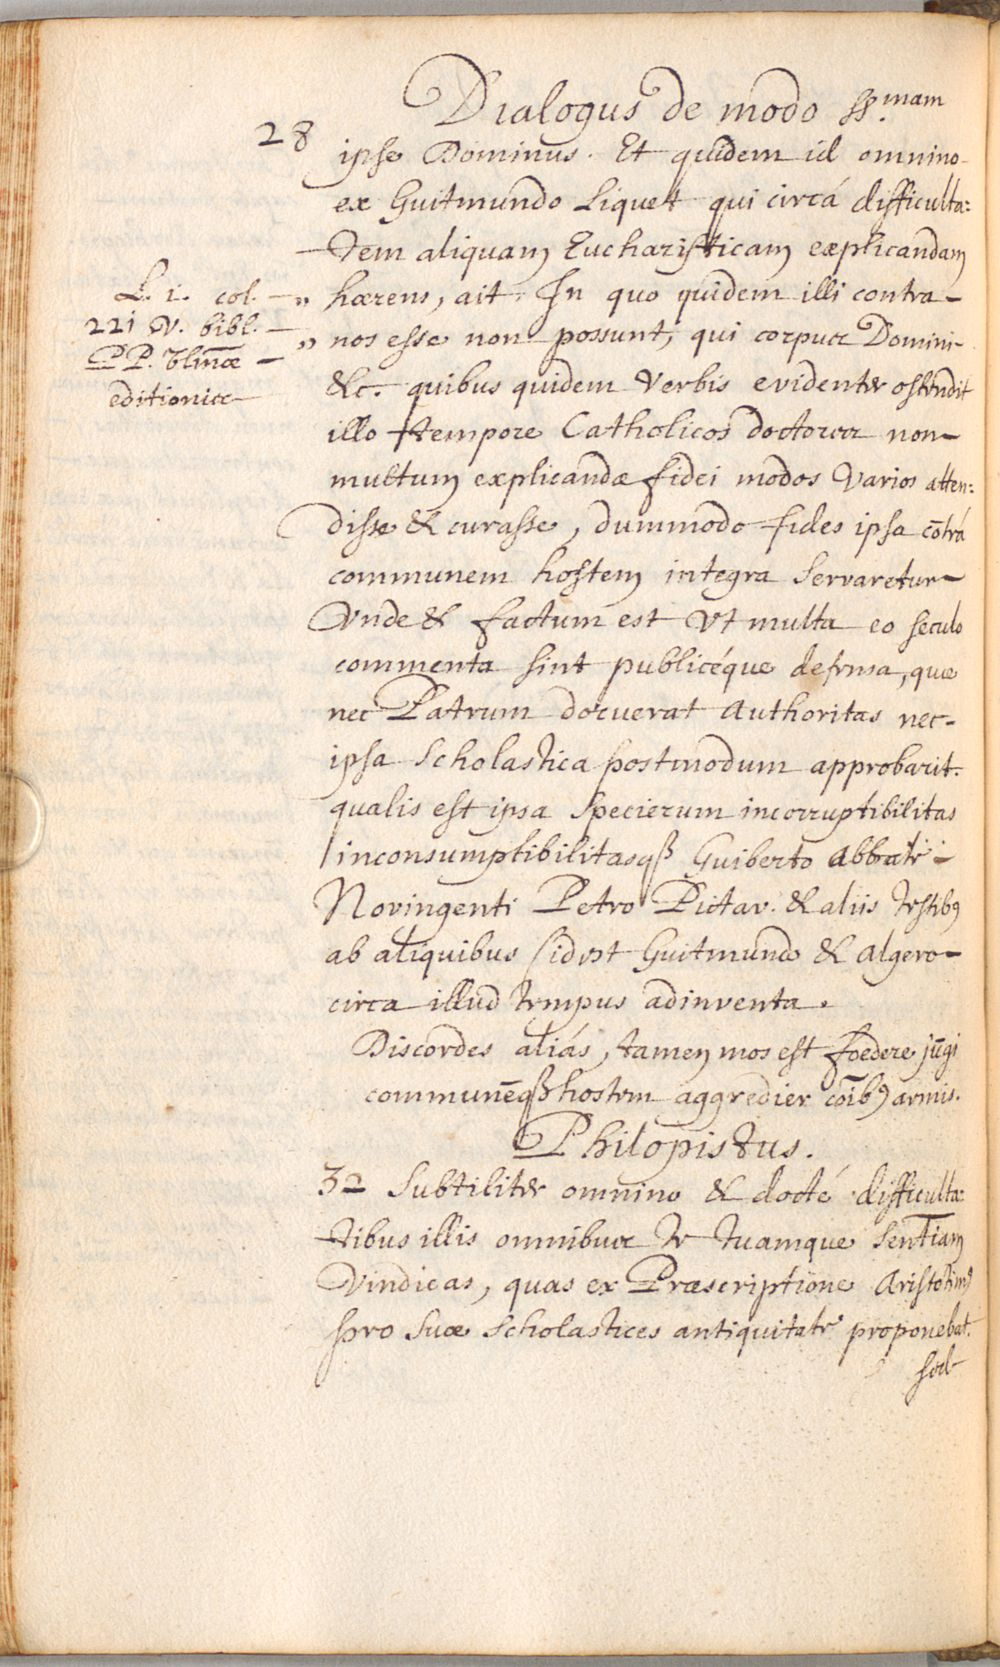 28
Dialogus de modo ss.mam
ipse Dominus. Et quidem id omnino
ex Guitmundo Liquet qui circá difficulta:
tem aliquam Eucharisticam explicandam
L. 1. col. — „ hærens, ait. In quo quidem illi contra-
221 v. bibl. — „ nos esse non possunt, qui corpus Domini
PP. vlmæ — &c. quibus quidem Verbis evidenter ostendit
editionis — illo tempore Catholicos doctores non
multum explicandæ fidei modos Varios atten:
disse & curasse, dummodo fides ipsa cōtrá
communem hostem integra Servaretur
Vnde & factum est Vt multa eo seculo
commenta sint publicéque defensa, quæ
nec Patrum docuerat Authoritas nec
ipsa Scholastica postmodum approbarit.
qualis est ipsa Specierum incorruptibilitas
inconsumptibilitasqꝫ Guiberto Abbate
Novingenti Petro Pictav. & aliis testibꝰ
ab aliquibus (idest Guitmundo & Algero
circa illud tempus adinventa.
Discordes aliás, tamen mos est foedere jūgi
communēqꝫ hostem aggredier cōibꝰ armis.
Philopistus.
32 Subtiliter omnino & docté difficulta:
tibus illis omnibus te tuamque Sentiam
Vindicas, quas ex Præscriptione Aristotimꝰ
pro suæ Scholastices antiquitate proponebat.
sed